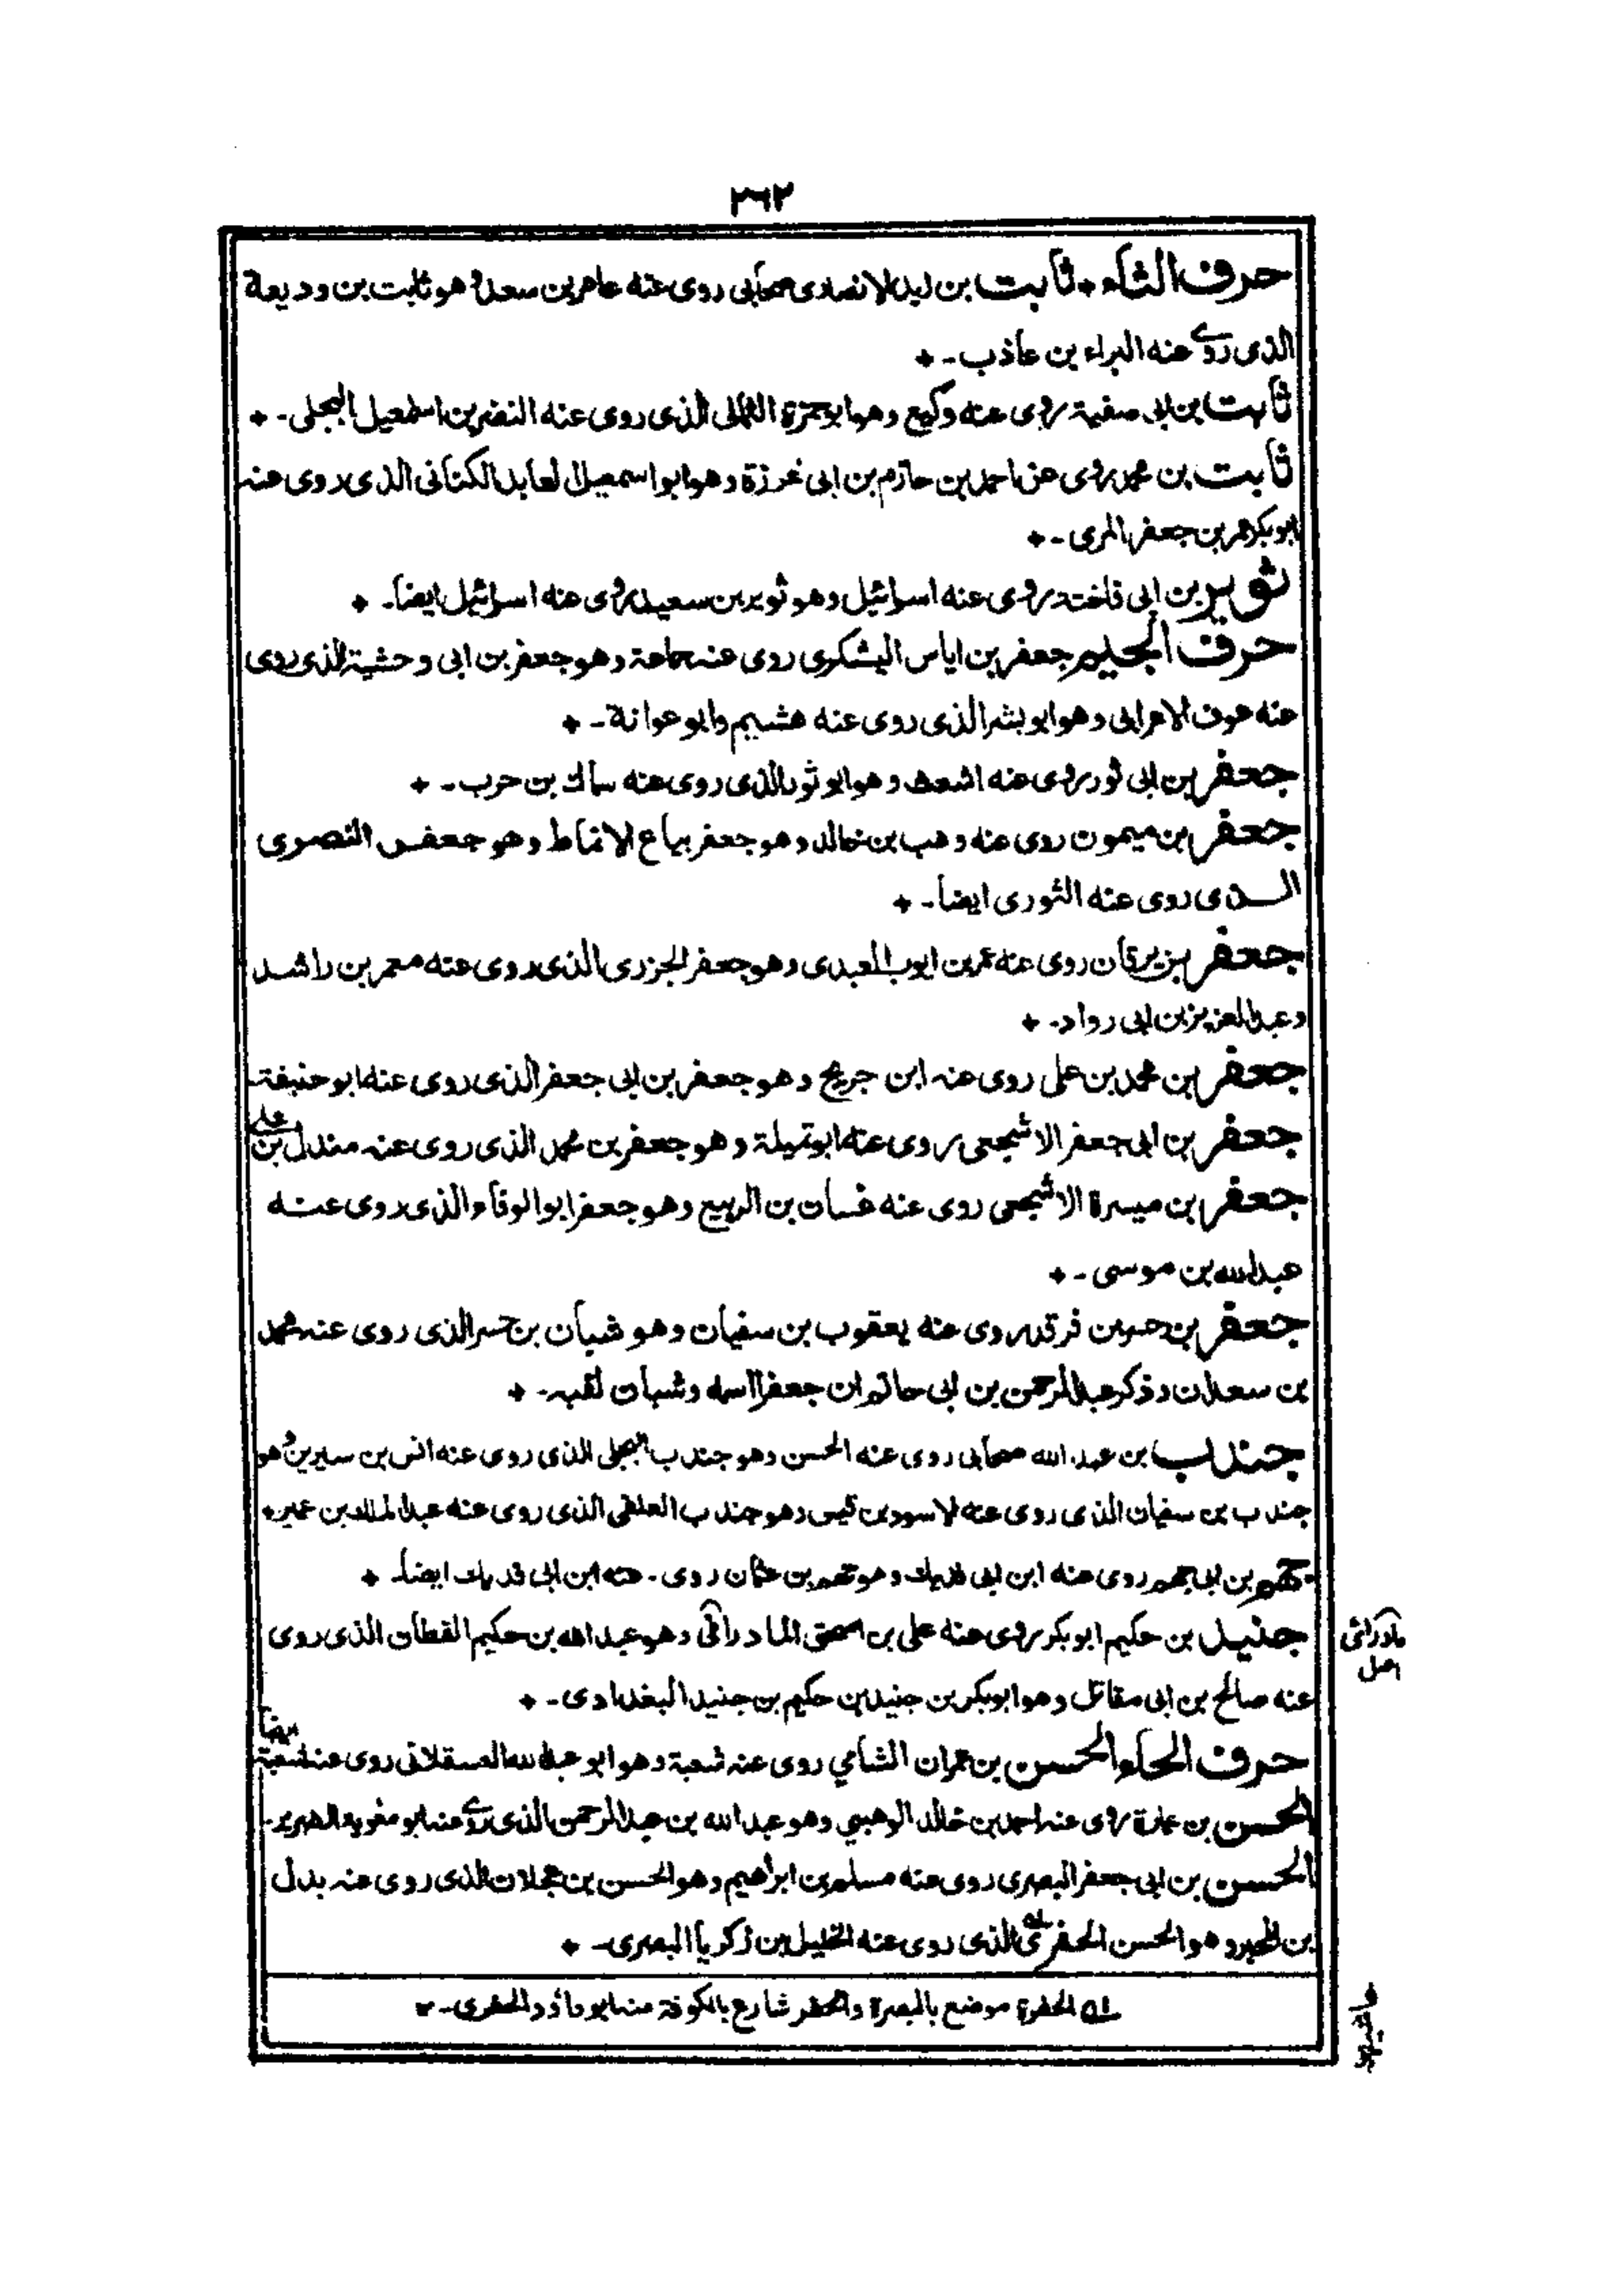 ٢٦٢
حرف الثاء ٭ ثابت بن يزيد الانصاري صحابي روى عنه عامر بن سعد وهو ثابت بن وديعة
الذي روى عنه البراء بن عاذب ـ ٭
ثابت بن ابي صفية روى عنه وكيع وهو ابو حمزة الثمالي الذي روى عنه النضر بن اسمعيل البجلي ـ ٭
ثابت بن محمد روى عنه احمد بن حازم بن ابي غرزة وهو ابو اسمعيل العابد الكناني الذي روى عنه
ابو بكر عمر بن جعفر المرى ـ ٭
ثوير بن ابي فاخته روى عنه اسرائيل وهو ثوير بن سعيد روى عنه اسرائيل ايضاً ـ ٭
حرف الجيم جعفر بن اياس اليشكرى روى عنه جماعة وهو جعفر بن ابي وحشية الذي روى
عنه عوف الاعرابي وهو ابو بشر الذي روى عنه هشيم وابو عوانة ـ ٭
جعفر بن ابي ثور روى عنه اشعث وهو ابو ثور الذي روى عنه سماك بن حرب ـ ٭
جعفر بن ميمون روى عنه وهب بن خالد وهو جعفر بياع الانماط وهو جعفر النصرى
الذى روى عنه الثورى ايضاً ـ ٭
جعفر بن برقان روى عنه عمر بن ايوب العبدى وهو جعفر الجزرى الذى روى عنه معمر بن راشد
وعبد العزيز بن ابي رواد ـ ٭
جعفر بن محمد بن على روى عنه ابن جريج وهو جعفر بن ابي جعفر الذى روى عنه ابو حنيفة
جعفر بن ابي جعفر الاشجعى روى عنه ابو تميلة وهو جعفر بن محمد الذى روى عنه مندل بن على
جعفر بن ميسرة الاشجعى روى عنه غسان بن الربيع وهو جعفر ابو الوفاء الذى روى عنه
عبد الله بن موسى ـ ٭
جعفر بن جسر بن فرقد روى عنه يعقوب بن سفيان وهو شبان بن جسر الذى روى عنه محمد
بن سعدان وذكر عبد الرحمن بن ابي حاتم ان جعفرا اسمه وشبان لقبه ـ ٭
جندب بن عبد الله صحابى روى عنه الحسن وهو جندب البجلى الذى روى عنه انس بن سيرين وهو
جندب بن سفيان الذى روى عنه الاسود بن قيس وهو جندب العلقى الذى روى عنه عبد الملك بن عمير ٭
جهم بن ابي جهم روى عنه ابن ابي فديك وهو جهم بن عثمان روى ـ عنه ابن ابي فديك ايضاً ـ ٭
جنيد بن حكيم ابو بكر روى عنه على بن اسحق المادرائى وهو عبد الله بن حكيم القطان الذى روى
مادرائى
اصل
عنه صالح بن ابي مقاتل وهو ابو بكر بن جنيد بن حكيم بن جنيد البغدادى ـ ٭
حرف الحاء الحسن بن عمران الشامي روى عنه شعبة وهو ابو عبد الله العسقلانى روى عنه شعبة ايضا
الحسن بن عمارة روى عنه احمد بن خالد الوهبي وهو عبد الله بن عبد الرحمن الذى روى عنه ابو معوية الضرير ـ
الحسن بن ابي جعفر البصرى روى عنه مسلم بن ابراهيم وهو الحسن بن عجلان الذى روى عنه بدل
بن المحبر وهو الحسن الحفرى الذى روى عنه الخليل بن زكريا البصرى ـ ٭
له الحفرة موضع بالبصرة والحفر شارع بالكوفة منه ابو داؤد الحفرى ـ
حاشيه